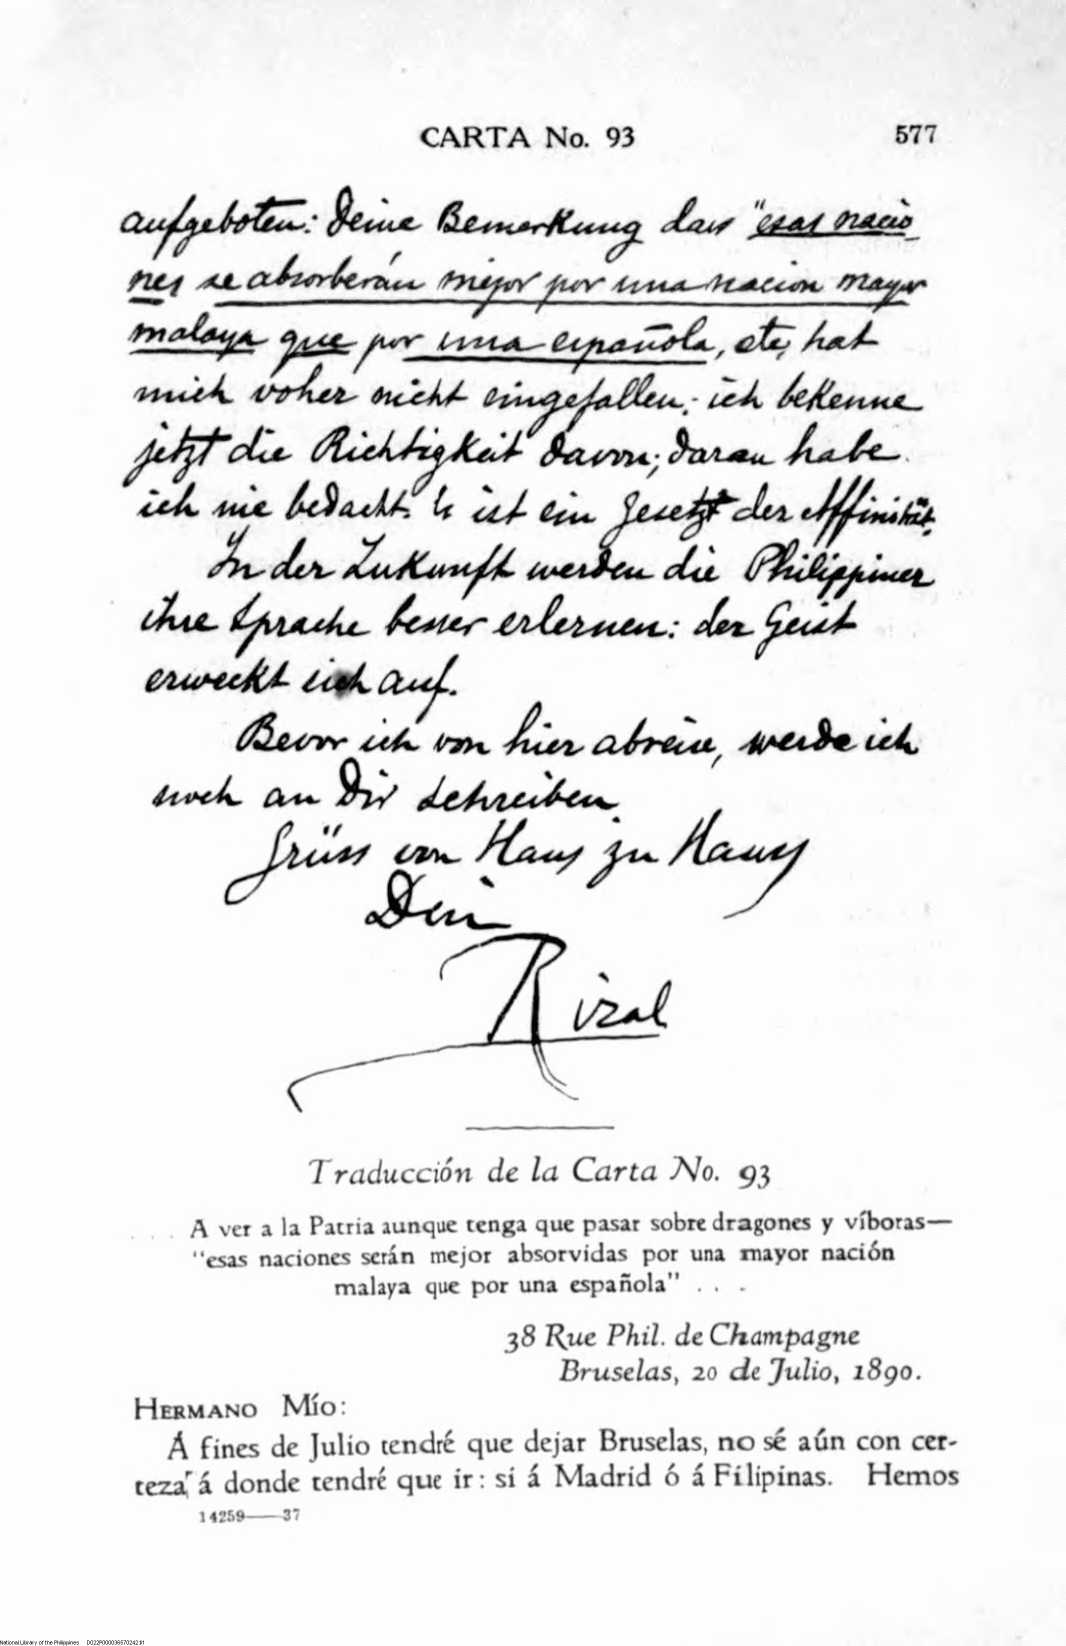 CARTA No. 93
577
aufgeboten: Deine Bemerkung dass "esas nacio
nes se absorberán mejor por una nacion mayor
malaya que por una española, etc, hat
mich voher nicht eingefallen; ich bekenne
jetzt die Richtigkeit davon; daran habe
ich nie bedacht. Es ist ein Gesetzt der Affinität.
In der Zukunft werden die Philippiner
ihre Sprache besser erlernen: der Geist
erweckt sich auf.
Bevor ich von hier abreise, werde ich
noch an Dir schreiben.
Grüss von Haus zu Haus
Dein
Rizal
Traducción de la Carta No. 93
. . . A ver a la Patria aunque tenga que pasar sobre dragones y víboras—
"esas naciones serán mejor absorvidas por una mayor nación
malaya que por una española" . . .
38 Rue Phil. de Champagne
Bruselas, 20 de Julio, 1890.
HERMANO Mío:
Á fines de Julio tendré que dejar Bruselas, no sé aún con cer-
teza á donde tendré que ir: si á Madrid ó á Filipinas. Hemos
14259——37
National Library of the Philippines